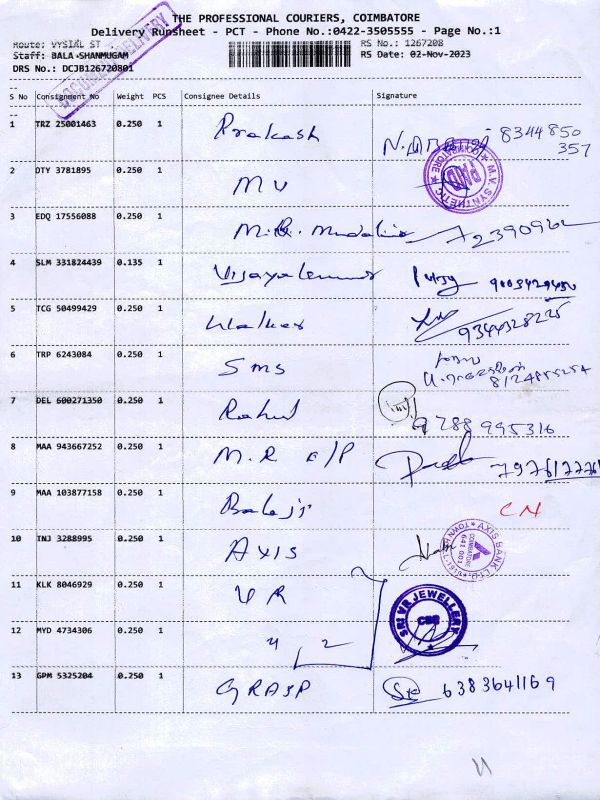 THE PROFESSIONAL COURIERS, COIMBATORE
Delivery Runsheet - PCT - Phone No.:0422-3505555 - Page No.:1
Route: VYSIAL ST RS No.: 1267208
Staff: BALA SHANMUGAM RS Date: 02-Nov-2023
DRS No.: DCJB126720801
S No Consignment No Weight PCS Consignee Details Signature
1 TRZ 25001463 0.250 1 Prakash 8344850
357
2 DTY 3781895 0.250 1 M V
M.V. SYNTHETIC COIMBATORE PAID
3 EDQ 17556088 0.250 1
4 SLM 331824439 0.135 1 Vijayakumar
5 TCG 50499429 0.250 1 Walker 9344328225
6 TRP 6243084 0.250 1 SMS
7 DEL 600271350 0.250 1 Rahul 9788995316
8 MAA 943667252 0.250 1 M.R
9 MAA 103877158 0.250 1 Balaji CN
10 INJ 3288995 0.250 1 AXIS
AXIS BANK LTD. TOWN HALL COIMBATORE 641 001
11 KLK 8046929 0.250 1 V R
SRI VR JEWELLERY CBE
12 MYD 4734306 0.250 1 4 2
13 GPM 5325204 0.250 1 GRASP 6383641169